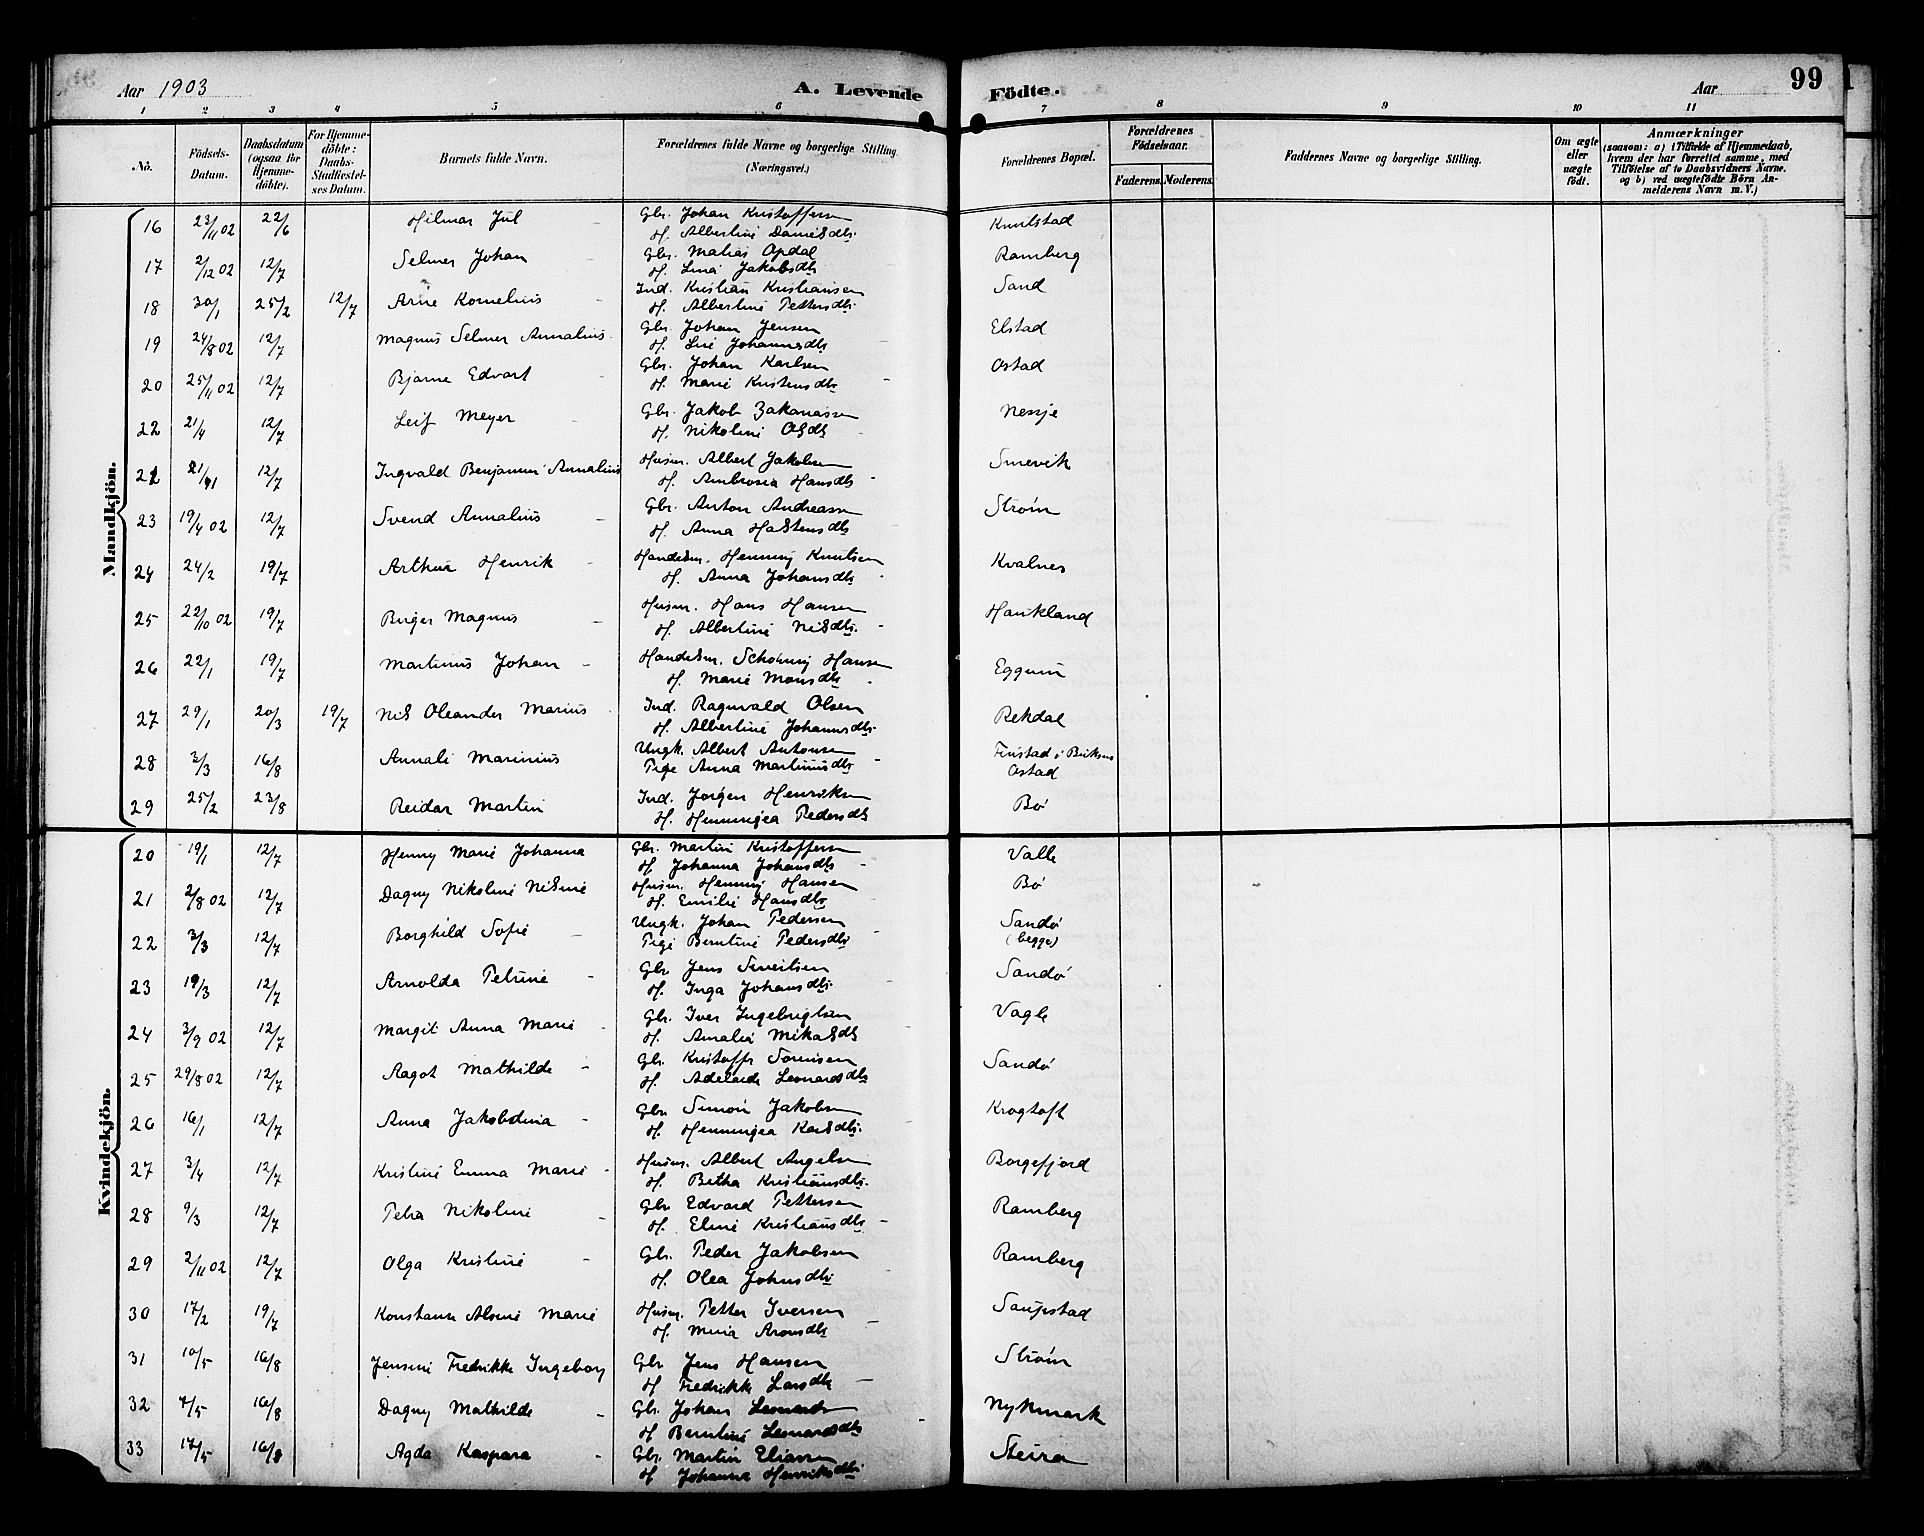 Aar 1903
A. Levende
Födte.
Aar
99
1 2 3 4 5 6 7 8 9 10 11
No.
Födsels-Datum.
Daabsdatum (ogsaa for Hjemmedöbte).
For Hjemmedöbte: Daabs-Stadfæstelses Datum.
Barnets fulde Navn.
Forældrenes fulde Navne og borgerlige Stilling. (Næringsvei.)
Forældrenes Bopæl.
Forældrenes Födselsaar.
Faderens. Moderens.
Faddernes Navne og borgerlige Stilling.
Om ægte eller uægte födt.
Anmærkninger (saasom: a) i Tilfælde af Hjemmedaab, hvem der har forrettet samme, med Tilföielse af to Daabsvidners Navne. og b) ved uægtefödte Börn Anmelderens Navn m. V.)
Mandkjön.
16 23/11 02 22/6 Hilmar Jul Gbr. Johan Kristoffersen Knutstad
H. Albertine Danielsdtr.
17 2/12 02 12/7 Selmer Johan Gbr. Matias Opdal Ramberg
H. Lina Jakobsdtr
18 30/1 25/2 12/7 Arne Kornelius Ind. Kristian Kristiansen Sand
H. Albertine Pettersdtr.
19 24/8 02 12/7 Magnus Selmer Annalius Gbr. Johan Jensen Elstad
H. Line Johannesdtr
20 25/11 02 12/7 Bjarne Edvart Gbr. Johan Karlsen Ostad
H. Marie Kristensdtr
22 21/4 12/7 Leif Meyer Gbr. Jakob Zakariassen Nesje
H. Nikoline Olsdtr
21 12/7 Ingvald Benjamin Annalius Husm. Albert Jakobsen Smevik
H. Ambrosia Hansdtr
23 19/4 02 12/7 Svend Annalius Gbr. Anton Andreassen Strøm
H. Anna Halstensdtr
24 24/2 19/7 Arthur Henrik Handelsm. Henning Knutsen Kvalnes
H. Anna Johansdtr
25 22/10 02 19/7 Birger Magnus Husm. Hans Hansen Haukland
H. Albertine Nilsdtr.
26 22/1 19/7 Martinus Johan Handelsm. Schøning Hansen Eggum
H. Marie Monsdtr
27 29/1 20/3 19/7 Nils Oleander Marius Ind. Ragnvald Olsen Rekdal
H. Albertine Johannesdtr.
28 3/3 16/8 Annali Marinius Ungk. Albert Antonsen Finstad i Buksnes
Pige Anna Martinusdtr Ostad
29 25/2 23/8 Reidar Martin Ind. Jørgen Henriksen Bø
H. Henningea Pedersdtr
Kvindekjön.
20 19/1 12/7 Henny Marie Johanna Gbr. Martin Kristoffersen Valle
H. Johanna Johansdtr
21 2/8 02 12/7 Dagny Nikoline Nilsine Husm. Henning Hansen Bø
H. Emilie Hansdtr
22 3/3 12/7 Borghild Sofie Ungk. Johan Pedersen Sandø
Pige Berntine Pedersdtr (begge)
23 19/3 12/7 Arnolda Petrine Gbr Jens Sivertsen Sandø
H. Inga Johansdtr.
24 3/9 02 12/7 Margit Anna Marie Gbr. Iver Ingebrigtsen Vagle
H. Amalia Mikalsdtr
25 29/8 02 12/7 Aagot Mathilde Gbr. Kristoffer Tønnisen Sandø
H. Adelaide Leonardsdtr
26 16/1 12/7 Anna Jakobdina Gbr Simon Jakobsen Krogtoft
H. Henningea Karlsdtr.
27 3/4 12/7 Kristine Emma Marie Husm. Albert Angelsen Borgefjord
H. Betha Kristiansdtr.
28 9/3 12/7 Petra Nikoline Gbr Edvard Pettersen Ramberg
H. Eline Kristiansdtr
29 2/11 02 12/7 Olga Kristine Gbr. Peder Jakobsen Ramberg
H. Olea Johnsdtr
30 17/2 19/7 Konstanse Alvine Marie Husm. Petter Iversen Saupstad
H. Maria Aronsdtr
31 10/5 16/8 Jensine Fredrikke Ingeborg Gbr Jens Hansen Strøm
H Fredrikke Larsdtr
32 7/5 16/8 Dagny Mathilde Gbr. Johan Leonards Nykmark
H Berntine Leonardsdtr
33 17/5 16/8 Agda Kaspara Gbr. Martin Eliassen Steira
H Johanna Henriksdtr.